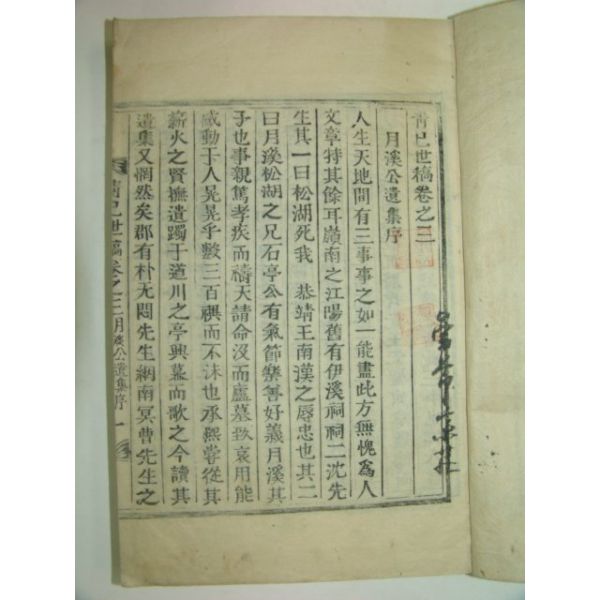 青已世稿卷之三
月溪公遺集序
人生天地間有三事事之如一能盡此方無愧為人
文章特其餘耳嶺南之江陽舊有伊溪祠祠二沈先
生其一曰松湖死我 恭靖王南漢之辱忠也其二
曰月溪松湖之兄石亭公有氣節樂善好義月溪其
子也事親篤孝疾而禱天請命沒而廬墓致哀用能
感動于人晃晃乎數三百禩而不沬也承熙嘗從其
薪火之賢撫遺躅于道川之亭興慕而歌之今讀其
遺集又惘然矣郡有朴无悶先生網南冥曹先生之
青已世稿卷之三 月溪公遺集序 一